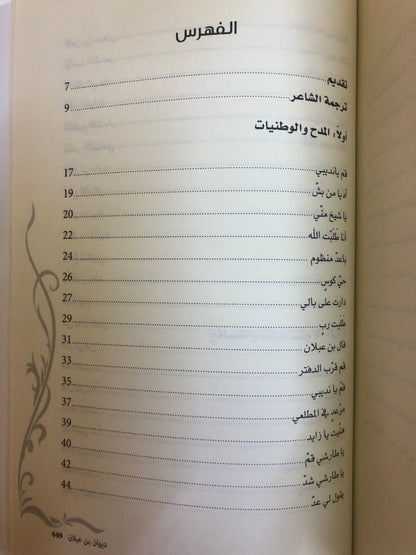 الفهرس
تقديم 7
ترجمة الشاعر 9
أولاً، المدح والوطنيات
قم يانديبي 17
آه يا من بثّ 19
يا شيخ منّي 20
أنا طَلَبْت الله 22
باعدّ منظوم 24
حيّ كوسٍ 26
دارت على بالي 27
طَلَبت ربٍ 29
قال بن عبلان 31
قم قرّب الدفتر 33
قمْ يا نديبي 35
مرعد في المطلعي 37
هنّيت يا زايد 39
يا طارشي قمْ 40
يا طارشي شدّ 42
يقول لي عدّ 44
ديوان بن عبلان 449